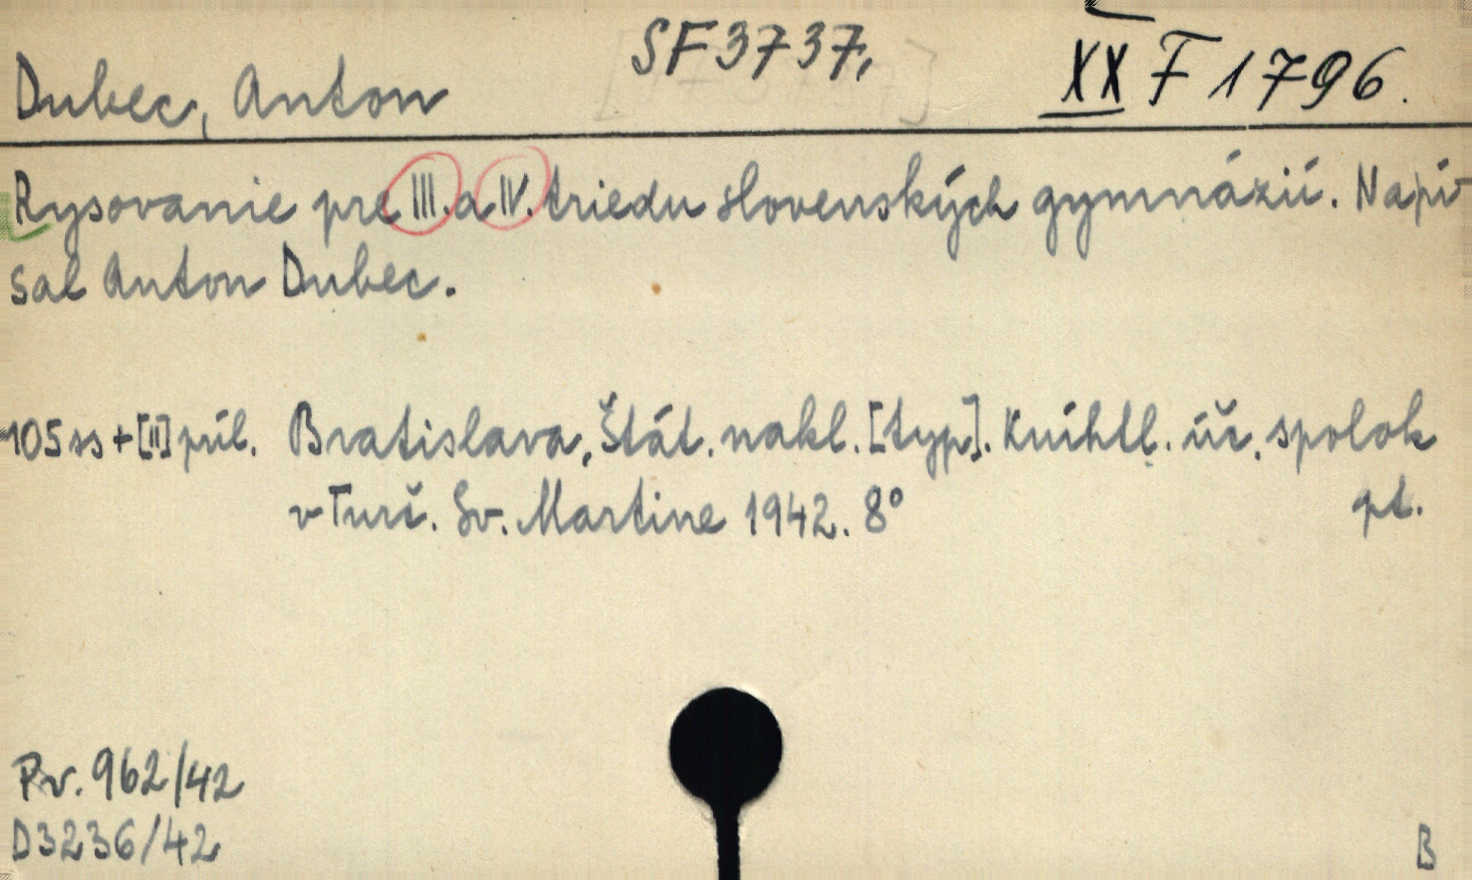 SF 3737, XX F 1796.
Dubec, Anton
Rysovanie pre III. a IV. triedu slovenských gymnázií. Napí-
sal Anton Dubec.
105 ss + [II] príl. Bratislava, Štát. nakl. [typ]. Kníhtl. úč. spolok
v Turč. Sv. Martine 1942. 8° pt.
Pv. 962/42
D3236/42
B